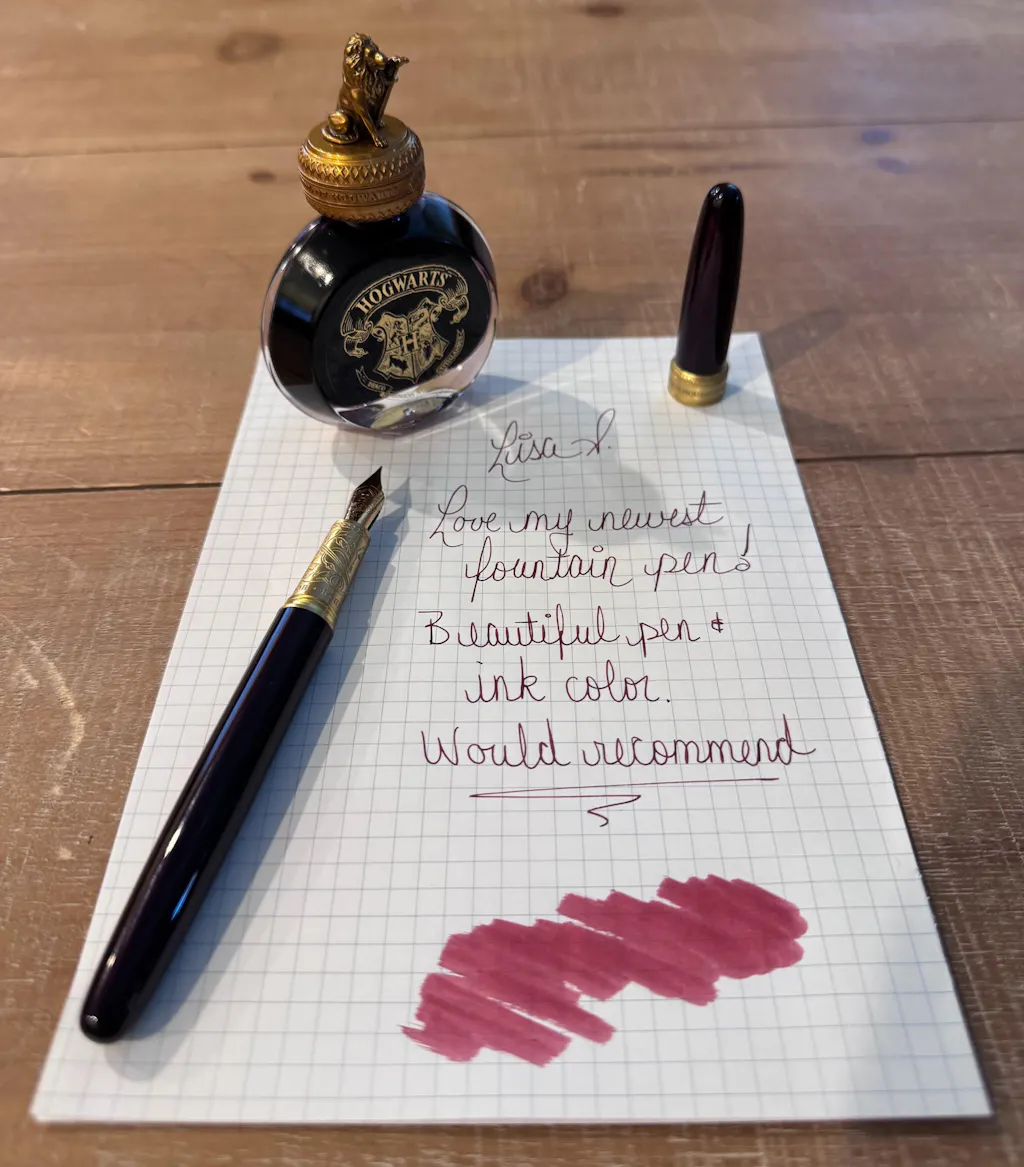 HOGWARTS
HOGWARTS
H
Lisa S.
Love my newest
fountain pen!
Beautiful pen &
ink color.
Would recommend